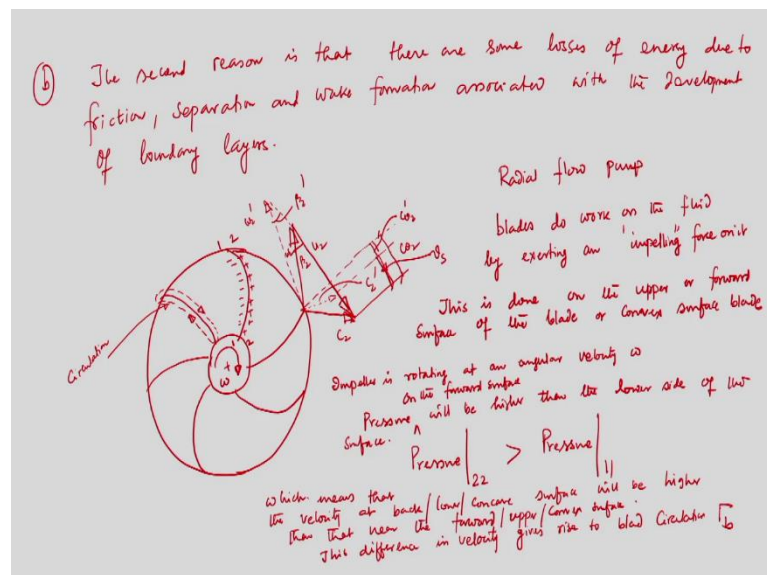 (b) The second reason is that there are some losses of energy due to
friction, separation and wake formation associated with the development
of boundary layers.
Radial flow pump
blades do work on the fluid
by exerting an "impelling" force on it
This is done on the upper or forward
surface of the blade or convex surface blade
Impeller is rotating at an angular velocity ω
on the forward surface
Pressure ^ will be higher than the lower side of the
surface.
Pressure|22 > Pressure|11
which means that
the velocity at back/lower/concave surface will be higher
than that near the forward/upper/convex surface.
This difference in velocity gives rise to blad Circulation Γb
Circulation
1 2
1 2
ω
ω2'
β2'
β2
u2
c2'
c2
cθ2'
cθ2